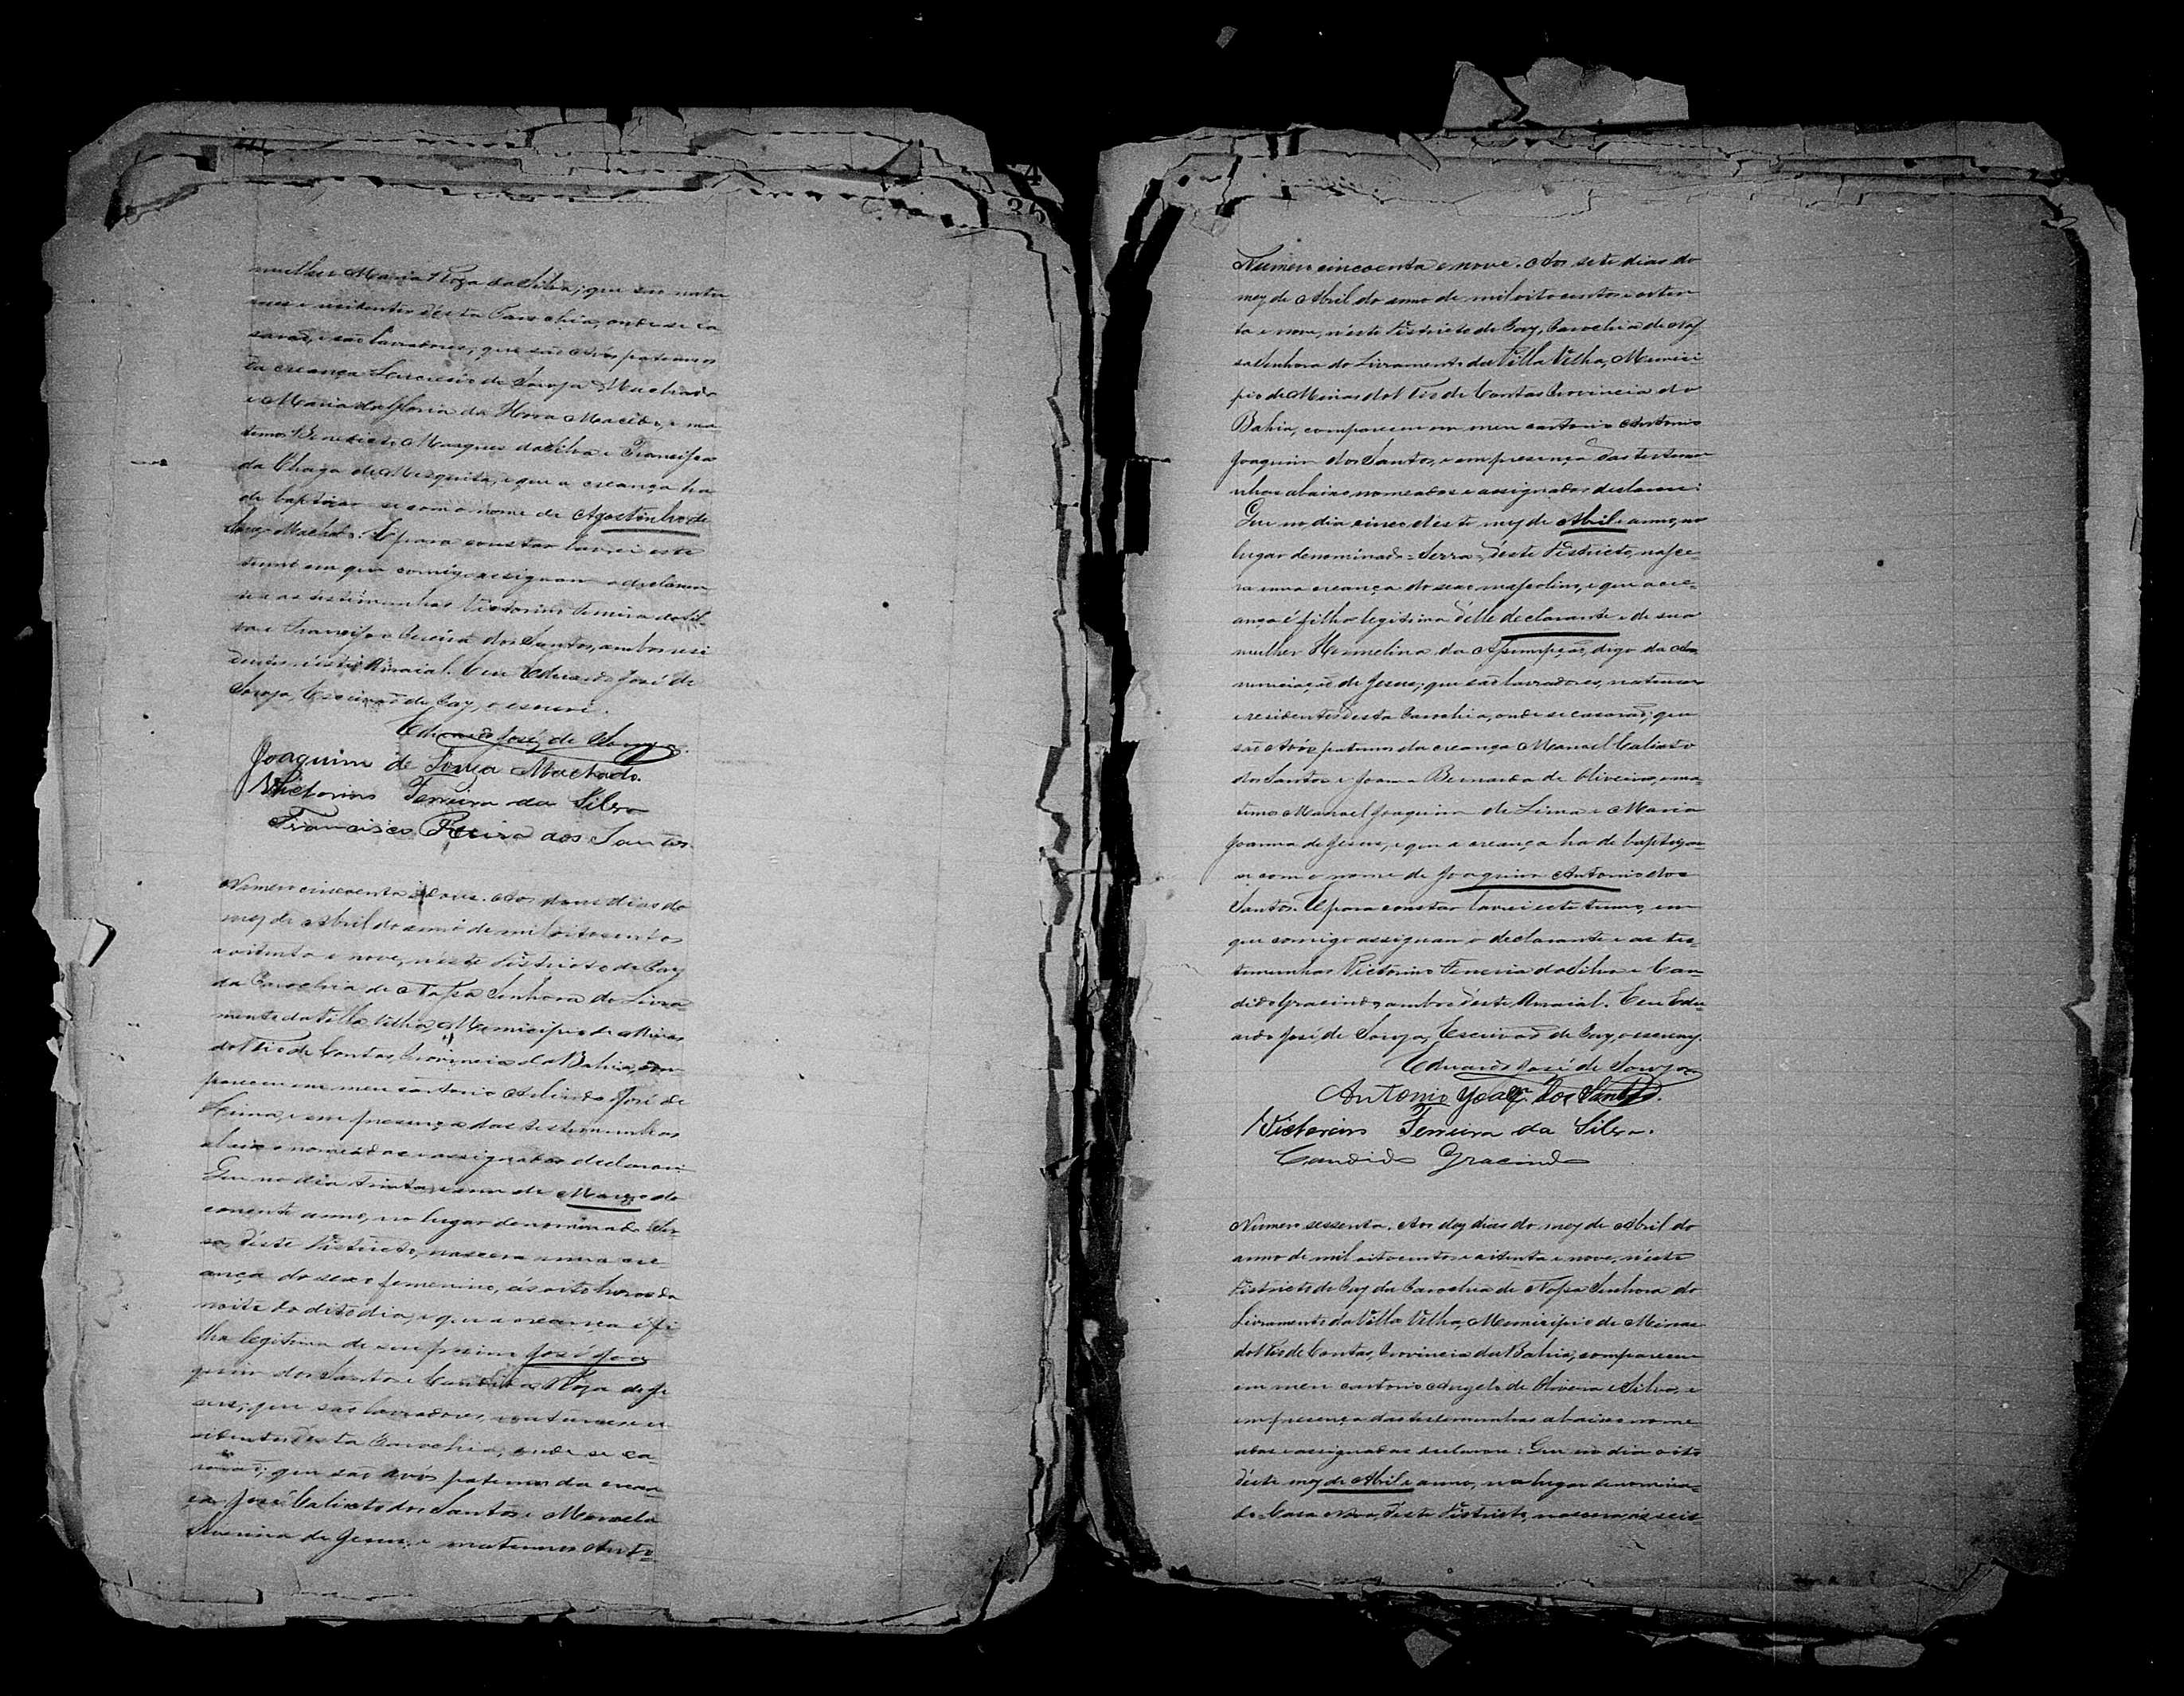 35
mulher Maria Roza da Silva; que são natu
raes e residentes d'esta Parochia, onde se ca
sarão, e são lavradores; que são avós paternos
da creança de Souza Machado
e Maria da Gloria da Hora Macêdo, e ma
ternos Benedicto Marques da Silva e Francisca
da Chaga de Mesquita, e que a creança ha
de baptizar-se com o nome de Agostinho de
Souza Machado. E para constar lavrei este
termo em que comigo assignam o declaran
te e as testemunhas Victorino Ferreira da Sil
va e Francisco Pereira dos Santos, ambos resi
dentes n'este Arraial. Eu Eduardo José de
Souza, Escrivão de Paz, o escrevi.
Eduardo José de Souza.
Joaquim de Souza Machado.
Victorino Ferreira da Silva
Francisco Pereira dos Santos.
Numero cincoenta e oito. Aos dous dias do
mez de Abril do anno de mil oitocentos
e oitenta e nove, n'este Districto de Paz
da Parochia de Nossa Senhora do Livra
mento da Villa Velha, Municipio de Minas
do Rio de Contas, Provincia da Bahia, com
pareceu em meu cartorio José de
Lima, e em presença das testemunhas
abaixo nomeadas e assignadas declarou:
Que no dia trinta e um de Março do
corrente anno, no lugar denominado Ser
ra, d'este Districto, nascera uma cre
ança do sexo femenino, ás oito horas da
noite do dito dia, e que a creança é fi
lha legitima de seu primo José Joa
quim dos Santos e Candida Roza de Je
sus; que são lavradores, naturaes e re
sidentes d'esta Parochia, onde se ca
sarão; que são avós paternos da crean
ça José Calixto dos Santos e Manoela
Severina de Jesus, e maternos Anto-
Numero cincoenta e nove. Aos sete dias do
mez de Abril do anno de mil oitocentos e oiten
ta e nove, n'este Districto de Paz, Parochia de Nos
sa Senhora do Livramento da Villa Velha, Munici-
pio de Minas do Rio de Contas Provincia da
Bahia, compareceu em meu cartorio Antonio
Joaquim dos Santos, e em presença das testemu-
nhas abaixo nomeadas e assignadas declarou:
Que no dia cinco d'este mez de Abril e anno, no
lugar denominado = Serra = d'este Districto, nasce-
ra uma creança do sexo masculino, e que a cre-
ança é filho legitimo d'elle declarante e de sua
mulher Hermelina da Assumpção, digo da An
nunciação de Jesus; que são lavradores, naturaes
e residentes d'esta Parochia, onde se casarão; que
são Avós paternos da creança Manoel Calixto
dos Santos e Joanna Bernarda de Oliveira, e ma-
ternos Manoel Joaquim de Lima e Maria
Joanna de Jesus, e que a creança ha de baptizar-
se com o nome de Joaquim Antonio dos
Santos. E para constar lavrei este termo, em
que comigo assignam o declarante e as tes-
temunhas Victorino Ferreira da Silva e Can-
dido Gracindo, ambos d'este Arraial. Eu Edu-
ardo José de Souza, Escrivão de Paz, o escrevy.
Eduardo José de Souza
Antonio Joaqm. dos Santos.
Victorino Ferreira da Silva.
Candido Gracindo
Numero sessenta. Aos dez dias do mez de Abril do
anno de mil oitocentos e oitenta e nove, n'este
Districto de Paz da Parochia de Nossa Senhora do
Livramento da Villa Velha, Municipio de Minas
do Rio de Contas, Provincia da Bahia, compareceu
em meu cartorio Angelo de Oliveira e Silva, e
em presença das testemunhas abaixo nome
adas e assignadas declarou: Que no dia oito
d'este mez de Abril e anno, no lugar denomina-
do Casa Nova, d'este Districto, nascera ás seis